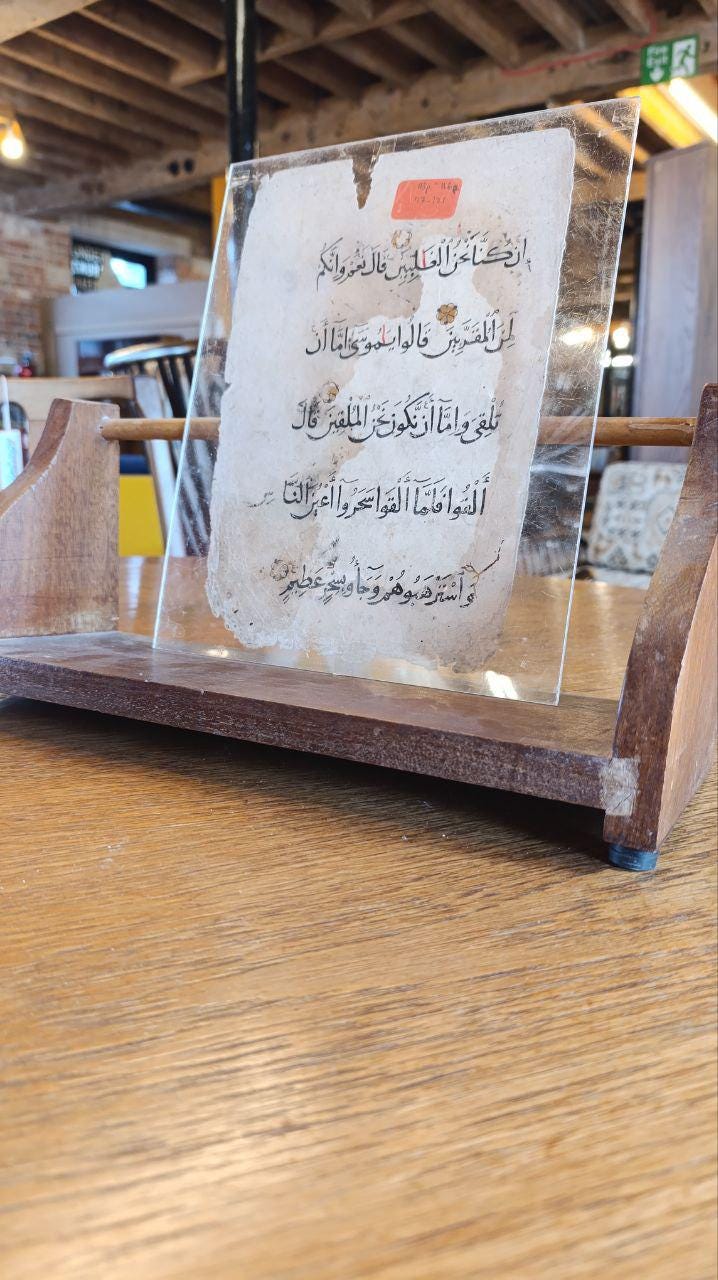 Fire
Exit
إِن كُنَّا نَحْنُ ٱلْغَٰلِبِينَ قَالَ نَعَمْ وَإِنَّكُمْ
لَمِنَ ٱلْمُقَرَّبِينَ قَالُوا يَٰمُوسَىٰ إِمَّآ أَن
تُلْقِىَ وَإِمَّآ أَن نَّكُونَ نَحْنُ ٱلْمُلْقِينَ قَالَ
أَلْقُوا فَلَمَّآ أَلْقَوْا سَحَرُوٓا أَعْيُنَ ٱلنَّاسِ
وَٱسْتَرْهَبُوهُمْ وَجَآءُو بِسِحْرٍ عَظِيمٍ